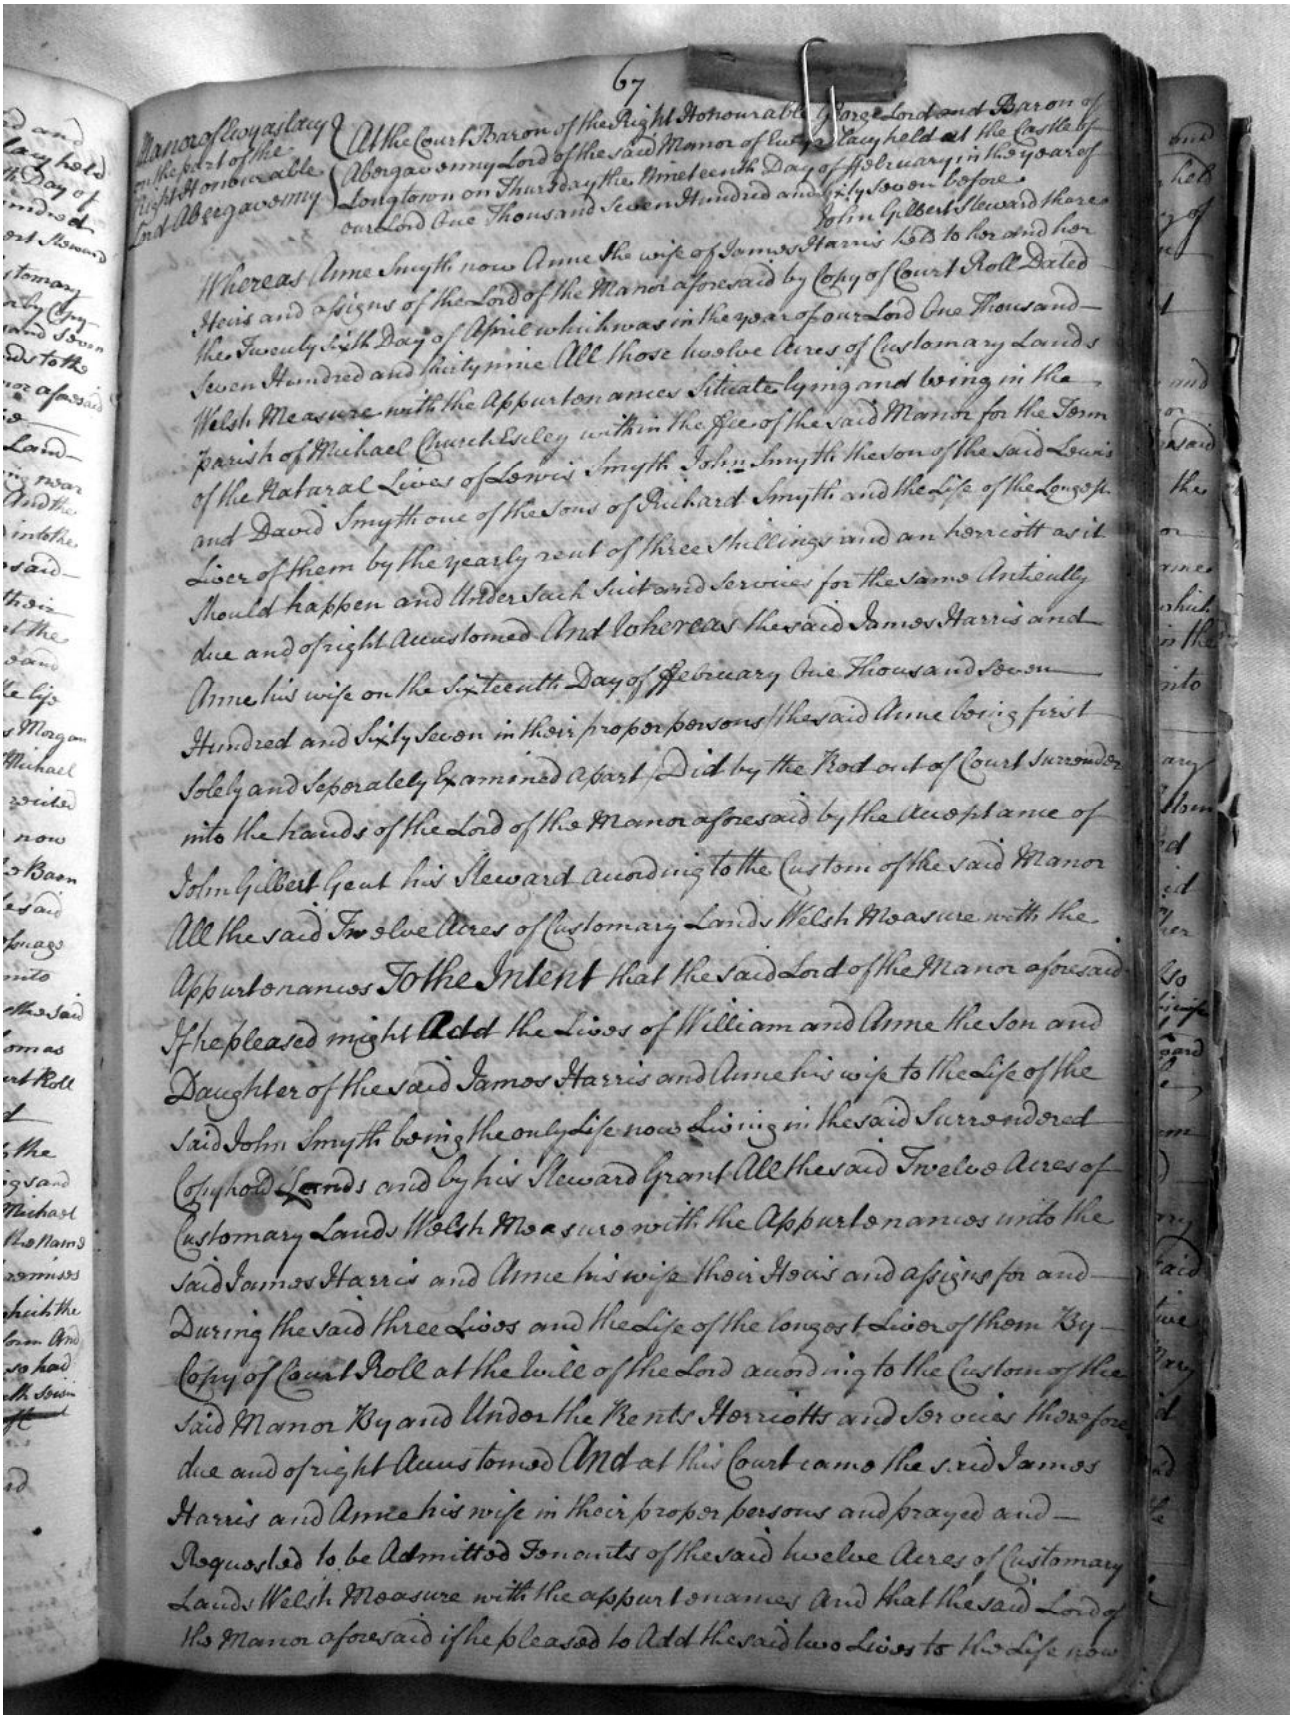 67
Manor of Ewyaslacy
on the part of the
Right Honourable
Lord Abergavenny
At the Court Baron of the Right Honourable George Lord and Baron of
Abergavenny Lord of the said Manor of Ewyaslacy held at the Castle of
Longtown on Thursday the Nineteenth Day of ffebruary in the year of
our Lord One Thousand Seven Hundred and sixty seven before
John Gilbert Steward there
Whereas Anne Smyth now Anne the wife of James Harris held to her and her
Heirs and assigns of the Lord of the Manor aforesaid by Copy of Court Roll Dated
the Twenty Sixth Day of April which was in the year of our Lord One Thousand
Seven Hundred and thirty nine All those twelve Acres of Customary Lands
Welsh Measure with the Appurtenances Situate lying and being in the
parish of Michael Church Escley within the ffee of the said Manor for the Term
of the Natural Lives of Lewis Smyth John Smyth the son of the said Lewis
and David Smyth one of the sons of Richard Smyth and the Life of the Longest
Liver of them by the yearly rent of three shillings and an herriott as it
should happen and Under such suit and services for the same Antiently
due and of right Accustomed And Whereas the said James Harris and
Anne his wife on the Sixteenth Day of ffebruary One Thousand seven
Hundred and Sixty Seven in their proper persons /the said Anne being first
solely and seperately Examined apart/ Did by the Rod out of Court surrender
into the hands of the Lord of the Manor aforesaid by the Acceptance of
John Gilbert Gent his Steward according to the Custom of the said Manor
All the said Twelve Acres of Customary Lands Welsh Measure with the
Appurtenances To the Intent that the said Lord of the Manor aforesaid
If he pleased might Add the Lives of William and Anne the Son and
Daughter of the said James Harris and Anne his wife to the Life of the
said John Smyth being the only Life now Living in the said Surrendered
Copyhold Lands and by his Steward Grant All the said Twelve Acres of
Customary Lands Welsh Measure with the Appurtenances unto the
said James Harris and Anne his wife their Heirs and assigns for and
During the said three Lives and the Life of the longest Liver of them By
Copy of Court Roll at the Will of the Lord according to the Custom of the
said Manor By and Under the Rents Herriotts and Services therefore
due and of right Accustomed And at this Court came the said James
Harris and Anne his wife in their proper persons and prayed and
Requested to be Admitted Tenants of the said twelve Acres of Customary
Lands Welsh Measure with the appurtenances And that the said Lord of
the Manor aforesaid if he pleased to Add the said two Lives to the Life now